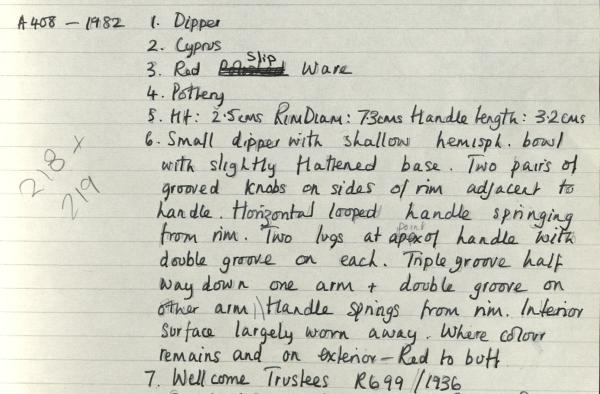 A408 - 1982 1. Dipper
2. Cyprus
3. Red Slip Ware
4. Pottery
5. Ht: 2.5cms RimDiam: 7.3cms Handle length: 3.2cms
6. Small dipper with shallow hemisph. bowl
with slightly flattened base. Two pairs of
grooved knobs on sides of rim adjacent to
handle. Horizontal looped handle springing
from rim. Two lugs at point of handle with
double groove on each. Triple groove half
way down one arm + double groove on
other arm. Handle springs from rim. Interior
surface largely worn away. Where colour
remains and on exterior - Red to buff.
7. Wellcome Trustees R699/1936
218 x
219